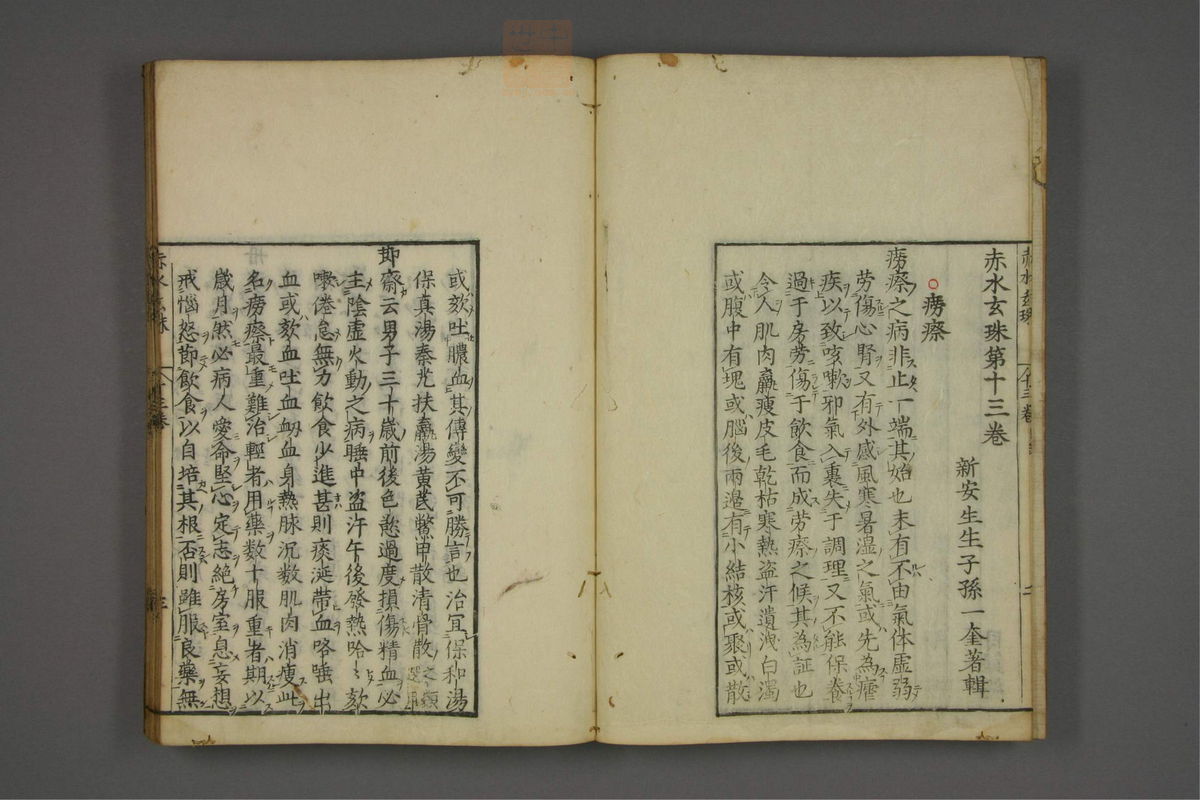 赤水玄珠第十三卷
新安生生子孫一奎著輯
癆瘵
癆瘵之病非止一端其始也未有不由氣体虛弱
劳傷心腎又有外感風寒暑湿之氣或先為瘧
疾以致咳嗽邪氣入裏失于調理又不能保養
過于房劳傷于飲食而成劳瘵之候其為証也
令人肌肉羸瘦皮毛乾枯寒熱盗汗遺洩白濁
或腹中有塊或腦後兩邉有小結核或聚或散
或欬吐膿血其傳變不可勝言也治宜保和湯
保真湯秦艽扶羸湯黄芪鱉甲散清骨散之類選用
節齋云男子三十歲前後色慾過度損傷精血必
主陰虛火動之病睡中盗汗午後發熱哈哈欬
嗽倦怠無力飲食少進甚則痰涎帶血咯唾出
血或欬血吐血衂血身熱脉沉数肌肉消瘦此
名癆瘵最重難治輕者用藥数十服重者期以
歲月然必病人愛命堅心定志絶房室息妄想
戒惱怒節飲食以自培其根否則雖服良藥無
赤水玄珠
十三卷